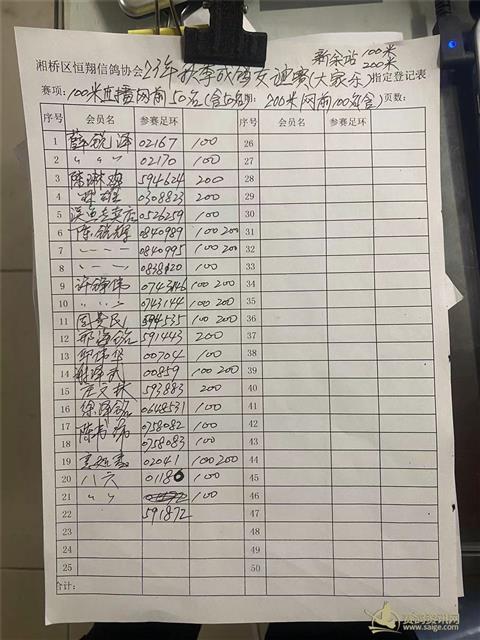 新余站 100米
200米
湘桥区恒翔信鸽协会23年秋季成鸽友谊赛(大家乐)指定登记表
赛项:100米直播网前50名(含50名) 200米网前100名(含) 页数:
序号 会员名 参赛足环 序号 会员名 参赛足环
1 薛锐泽 02167 100 26
2 〃 〃 〃 02170 100 27
3 陈琳 594624 200 28
4 0308823 200 29
5 0526259 100 30
6 陈锐辉 0840989 100 200 31
7 〃 0840995 100 200 32
8 〃 0838120 100 33
9 许 伟 0743146 100 200 34
10 〃 〃 0743144 100 200 35
11 周黄民 594535 100 200 36
12 海铭 591443 200 37
13 邱伟华 00704 100 38
14 00859 100 200 39
15 文林 593883 200 40
16 徐泽铭 0648531 100 41
17 陈 0758082 100 42
18 0758083 100 43
19 02041 100 200 44
20 八六 01180 100 45
21 〃 〃 100 46
22 591872 47
23 48
24 49
25 50
合计:
赛鸽资讯网
www.saige.com